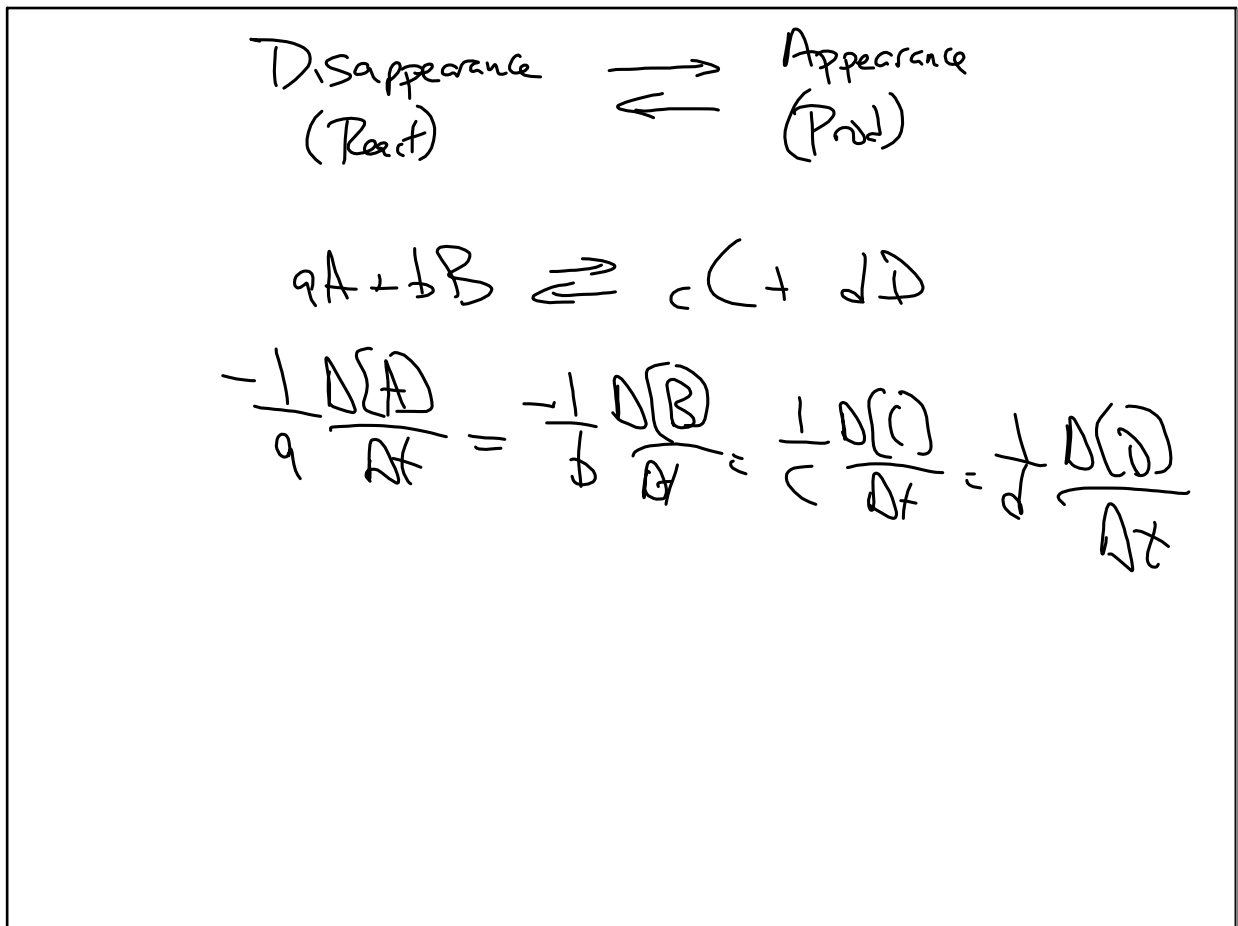 Disappearance ⇌ Appearance
(React) (Prod)
aA + bB ⇌ cC + dD
-1/a Δ[A]/Δt = -1/b Δ[B]/Δt = 1/c Δ[C]/Δt = 1/d Δ[D]/Δt